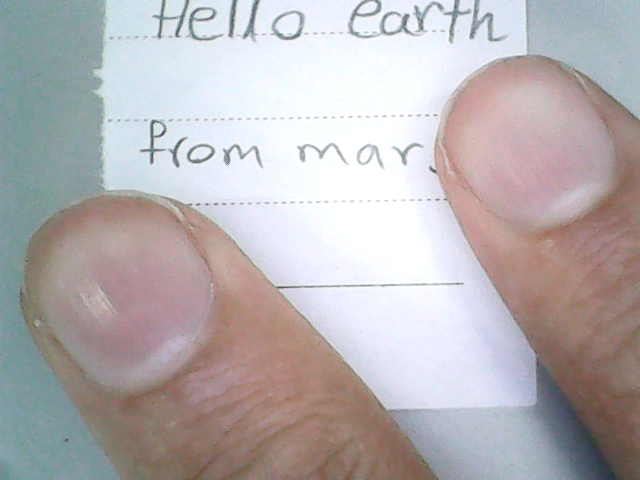 Hello earth
from